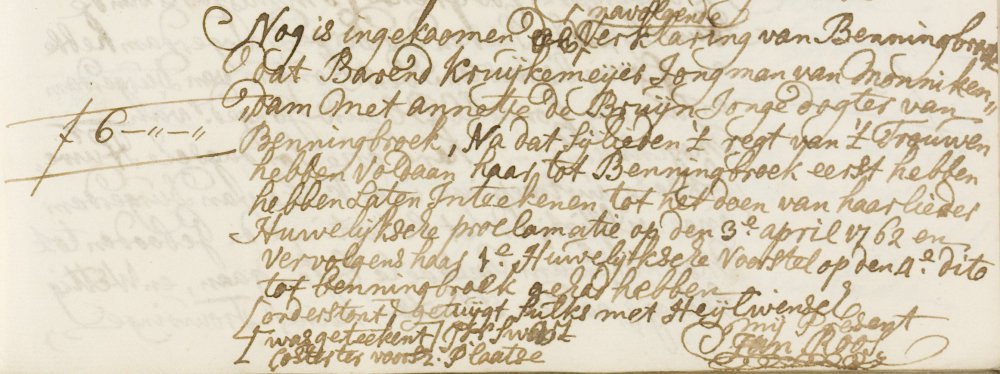 navolgende
Nog is ingekoomen de Verklaring van Benningbroek
dat Barend Kruijkemeijer Jongman van Monniken„
„dam Met annetje de Bruijn Jonge dogter van
ƒ 6 —„—„
Benningbroek, Na dat Sij lieden 't regt van 't Trouwen
hebben Voldaan haar tot Benningbroek eerst hebben
hebben Laten Inteekenen tot het doen van haarlieder
Huwelijksche proclamatie op den 3e april 1762 en
vervolgens haar 1e Huwelijksche Voorstel op den 4e dito
tot benningbroek gehad hebben
[onderstont] getuijgt sulks met Heijlwensch
[was geteekent] Swart
Coster ter voorsz: Plaatse
mij Present
Jan Roos